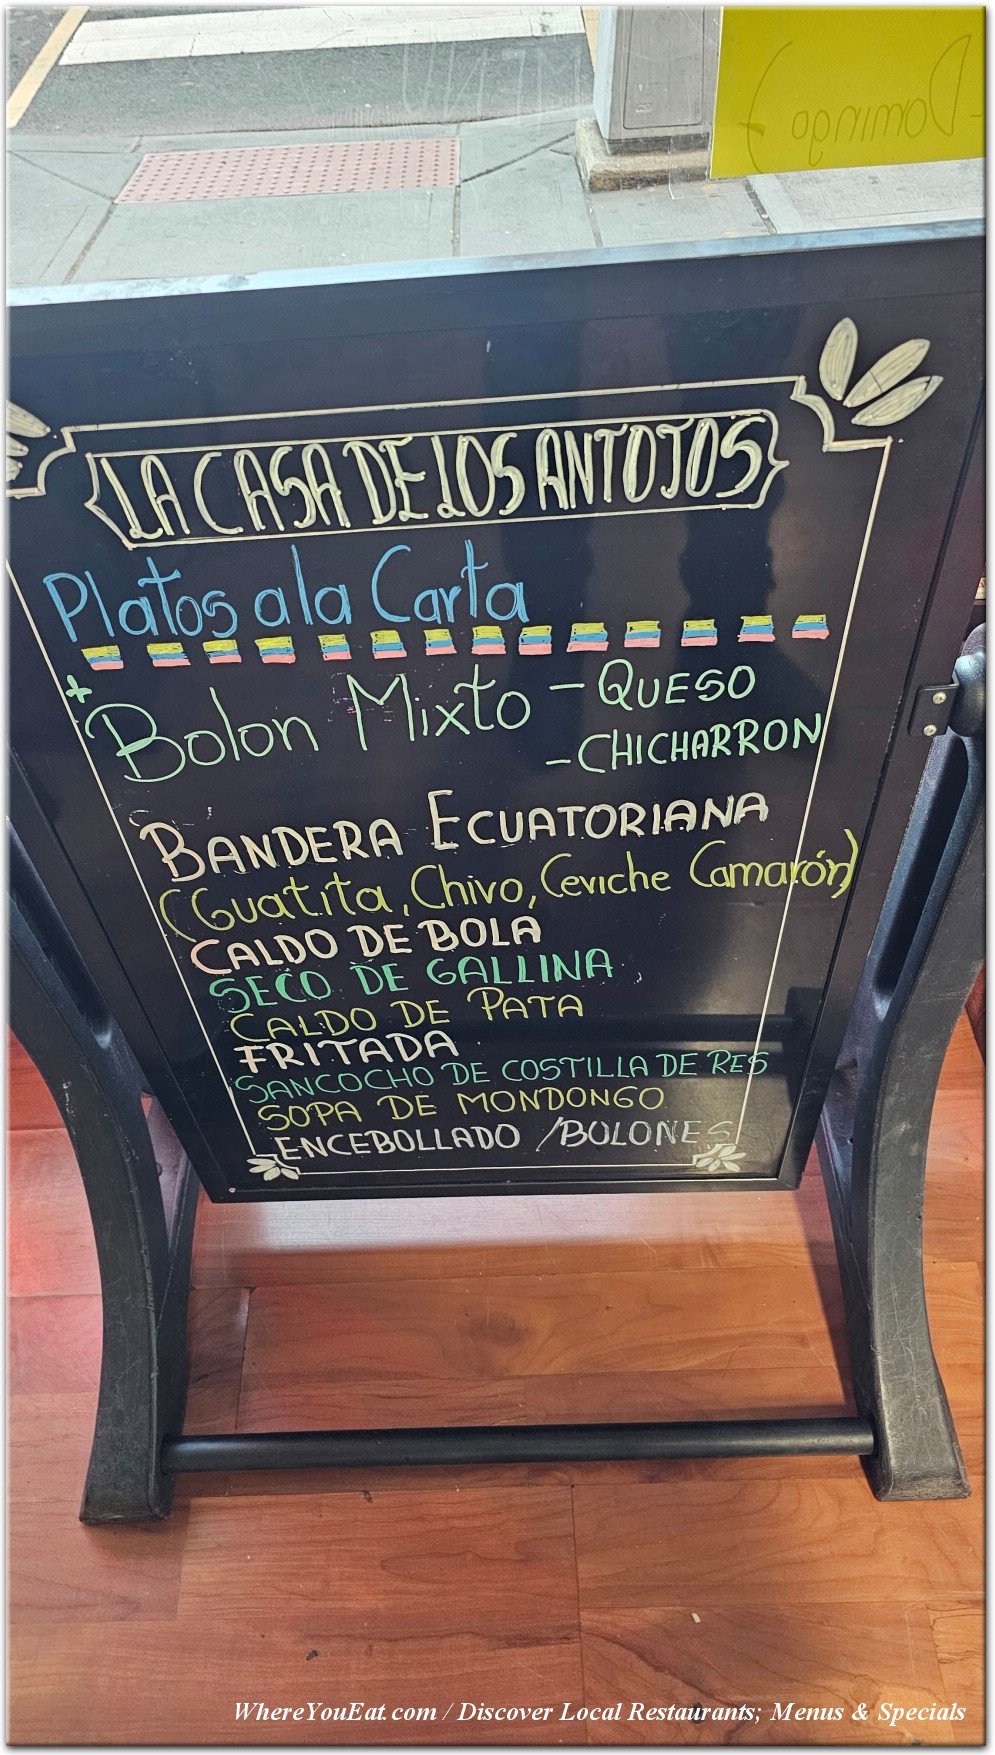 MENU
- Domingo )
LA CASA DE LOS ANTOJOS
Platos a la Carta
+
Bolon Mixto - QUESO
- CHICHARRON
BANDERA ECUATORIANA
(Guatita, Chivo, Ceviche Camarón)
CALDO DE BOLA
SECO DE GALLINA
CALDO DE PATA
FRITADA
SANCOCHO DE COSTILLA DE RES
SOPA DE MONDONGO
ENCEBOLLADO /BOLONES
WhereYouEat.com / Discover Local Restaurants; Menus & Specials